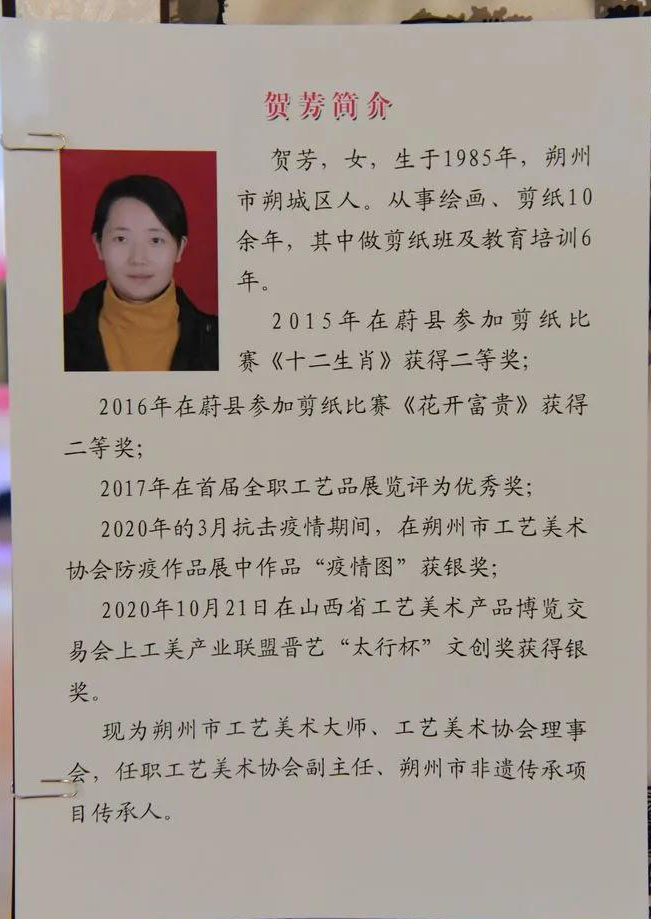 贺芳简介
贺芳，女，生于1985年，朔州
市朔城区人。从事绘画、剪纸10
余年，其中做剪纸班及教育培训6
年。
2015年在蔚县参加剪纸比
赛《十二生肖》获得二等奖；
2016年在蔚县参加剪纸比赛《花开富贵》获得
二等奖；
2017年在首届全职工艺品展览评为优秀奖；
2020年的3月抗击疫情期间，在朔州市工艺美术
协会防疫作品展中作品“疫情图”获银奖；
2020年10月21日在山西省工艺美术产品博览交
易会上工美产业联盟晋艺“太行杯”文创奖获得银
奖。
现为朔州市工艺美术大师、工艺美术协会理事
会，任职工艺美术协会副主任、朔州市非遗传承项
目传承人。